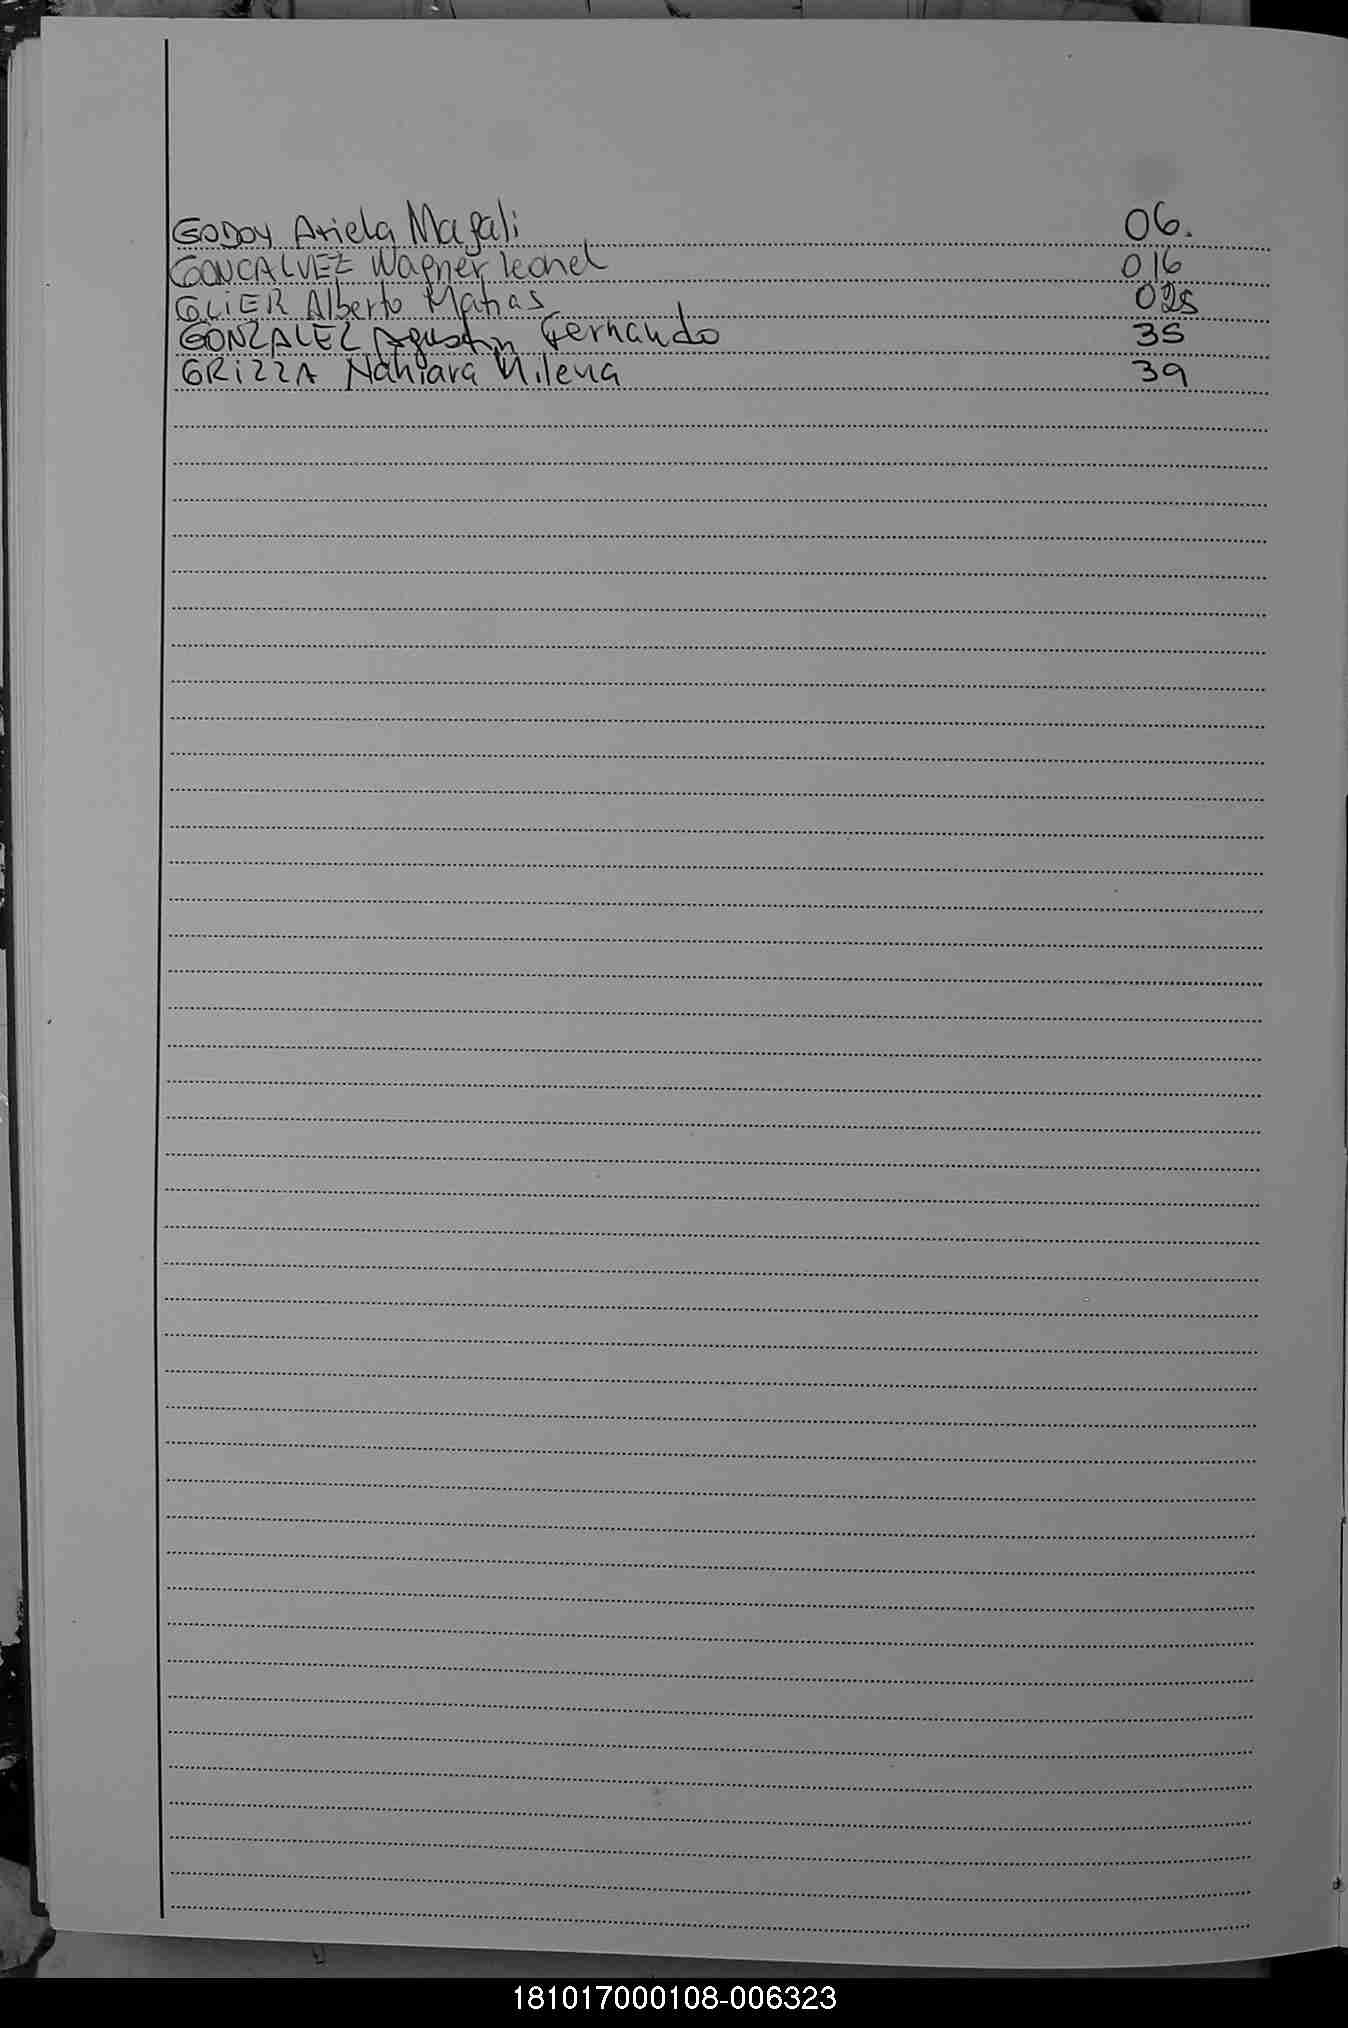 GODOY Ariela Magali 06.
GONCALVEZ Wagner leonel 016
GLiER Alberto Matias 025
GONZALEZ Agustin Fernando 35
GRiZZA Nahiara Milena 39
181017000108-006323